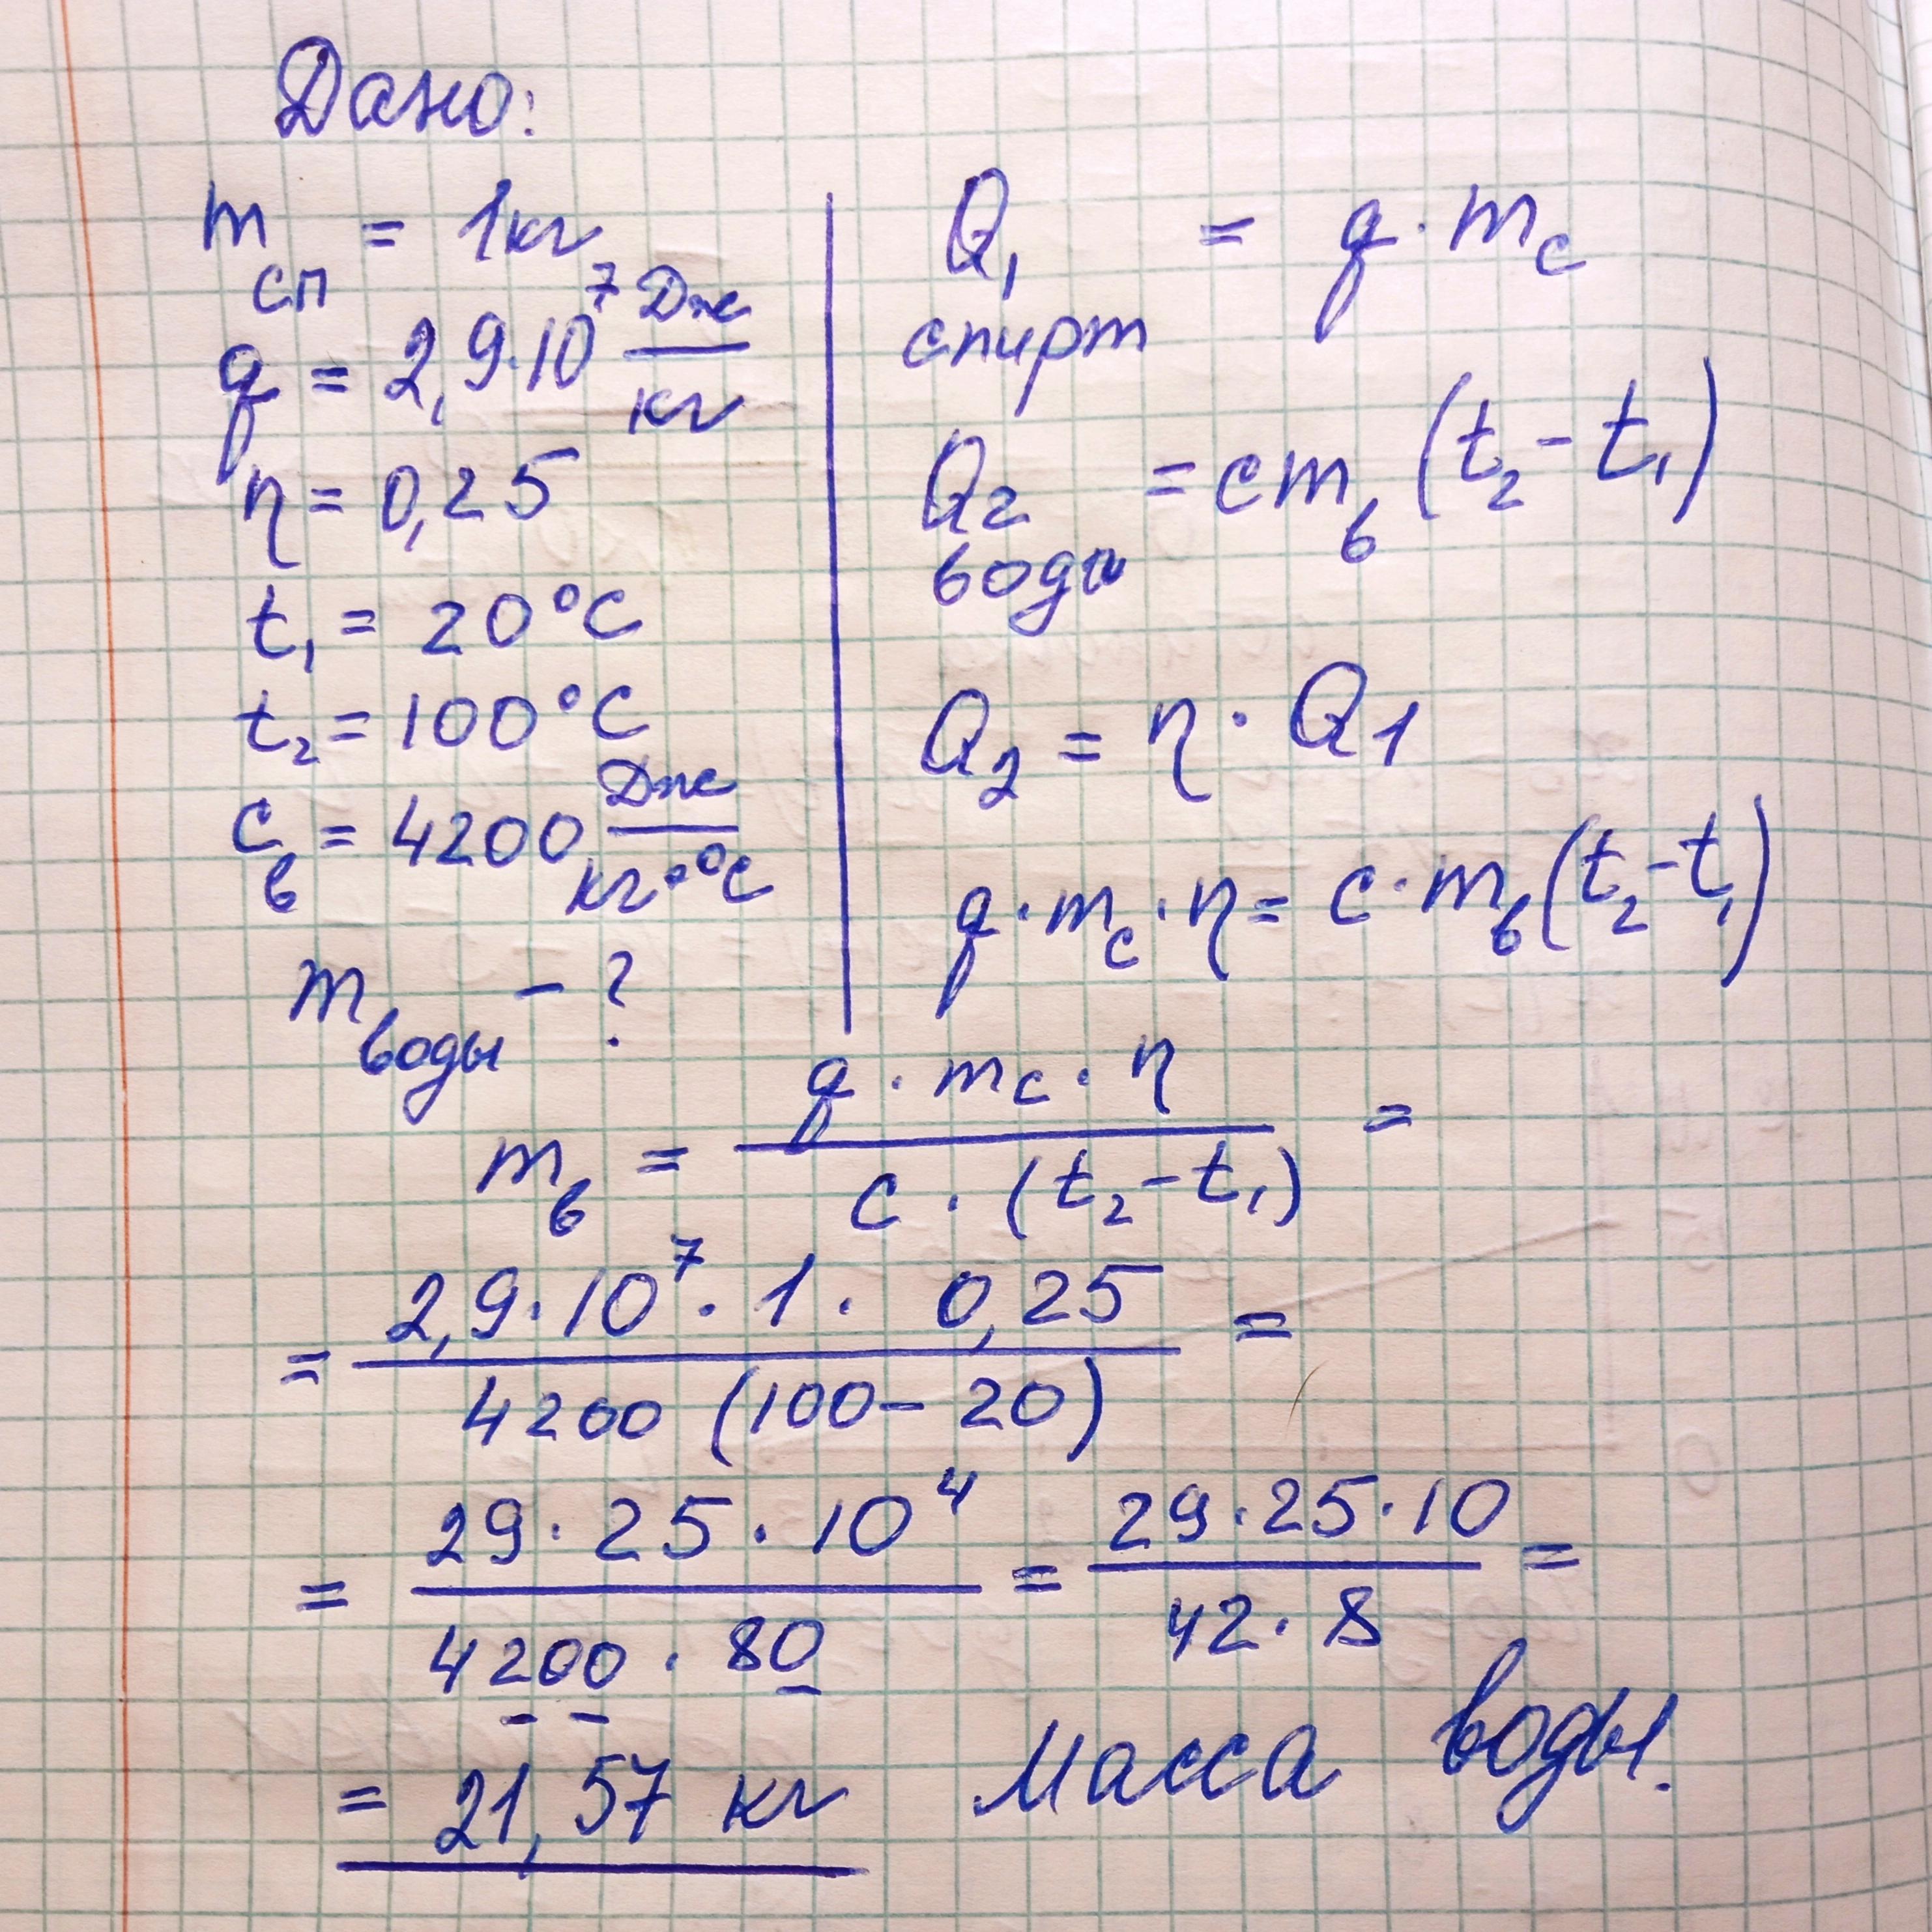 Дано:
m сп = 1кг
q = 2,9·10⁷ Дж/кг
η = 0,25
t₁ = 20°C
t₂ = 100°C
c в = 4200 Дж/кг·°C
m воды - ?
Q₁ спирт = q·m c
Q₂ воды = cm в (t₂ - t₁)
Q₂ = η · Q1
q·m c·η = c·m в (t₂ - t₁)
m в = q · m c · η / c · (t₂ - t₁) =
= 2,9·10⁷ · 1 · 0,25 / 4200 (100 - 20) =
= 29 · 25 · 10⁴ / 4200 · 80 = 29·25·10 / 42·8 =
= 21,57 кг Масса воды.